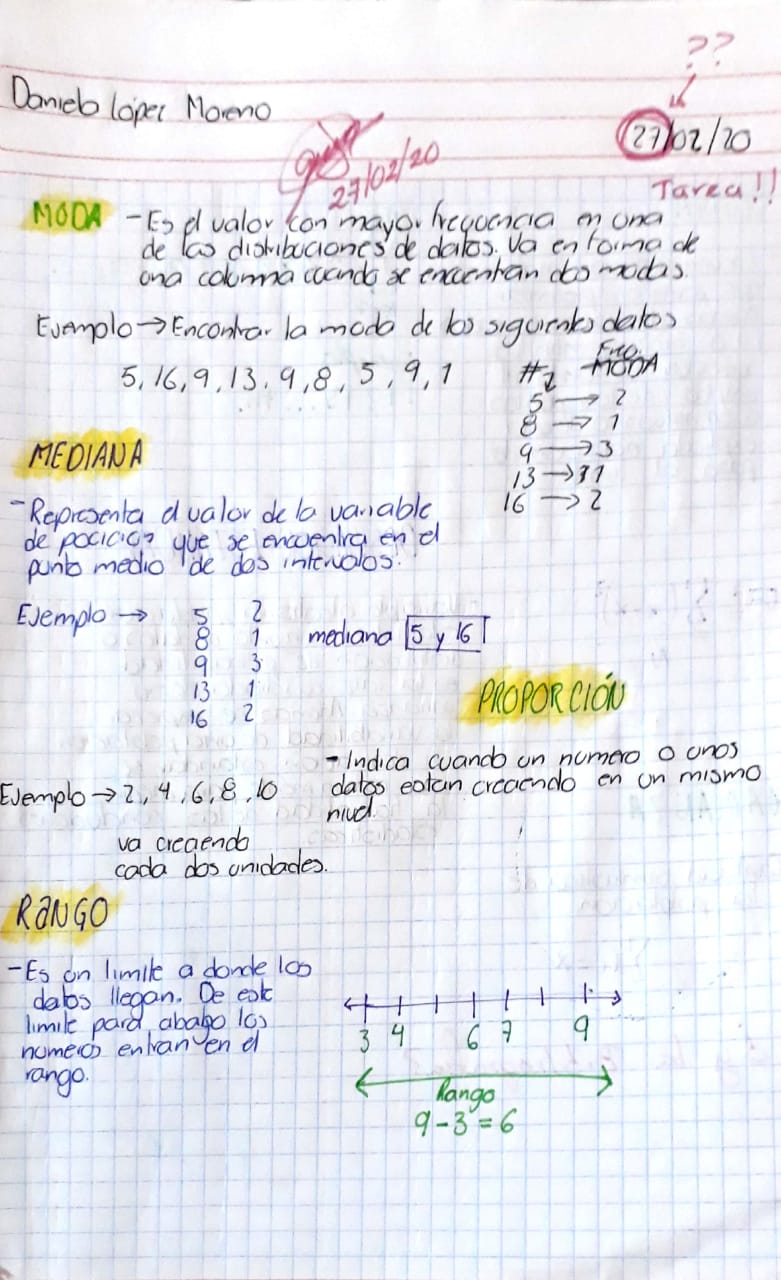 ??
Daniela López Moreno
27/02/20
27/02/20
Tarea!!
MODA - Es el valor con mayor frecuencia en una
de las distribuciones de datos. Va en forma de
una columna cuando se encuentran dos modas.
Ejemplo → Encontrar la moda de los siguientes datos
5, 16, 9, 13, 9, 8, 5, 9, 1
#2 MODA
5 → 2
8 → 1
9 → 3
13 → 1
16 → 2
MEDIANA
- Representa el valor de la variable
de que se encuentra en el
punto medio de dos intervalos.
Ejemplo →
5 2
8 1
9 3
13 1
16 2
mediana 5 y 16
PROPORCIÓN
- Indica cuando un numero o unos
datos estan creciendo en un mismo
nivel.
Ejemplo → 2, 4, 6, 8, 10
va creciendo
cada dos unidades.
RANGO
- Es un limite a donde los
datos llegan. De este
limite para abajo los
numeros entran en el
rango.
3 4 6 7 9
Rango
9 - 3 = 6